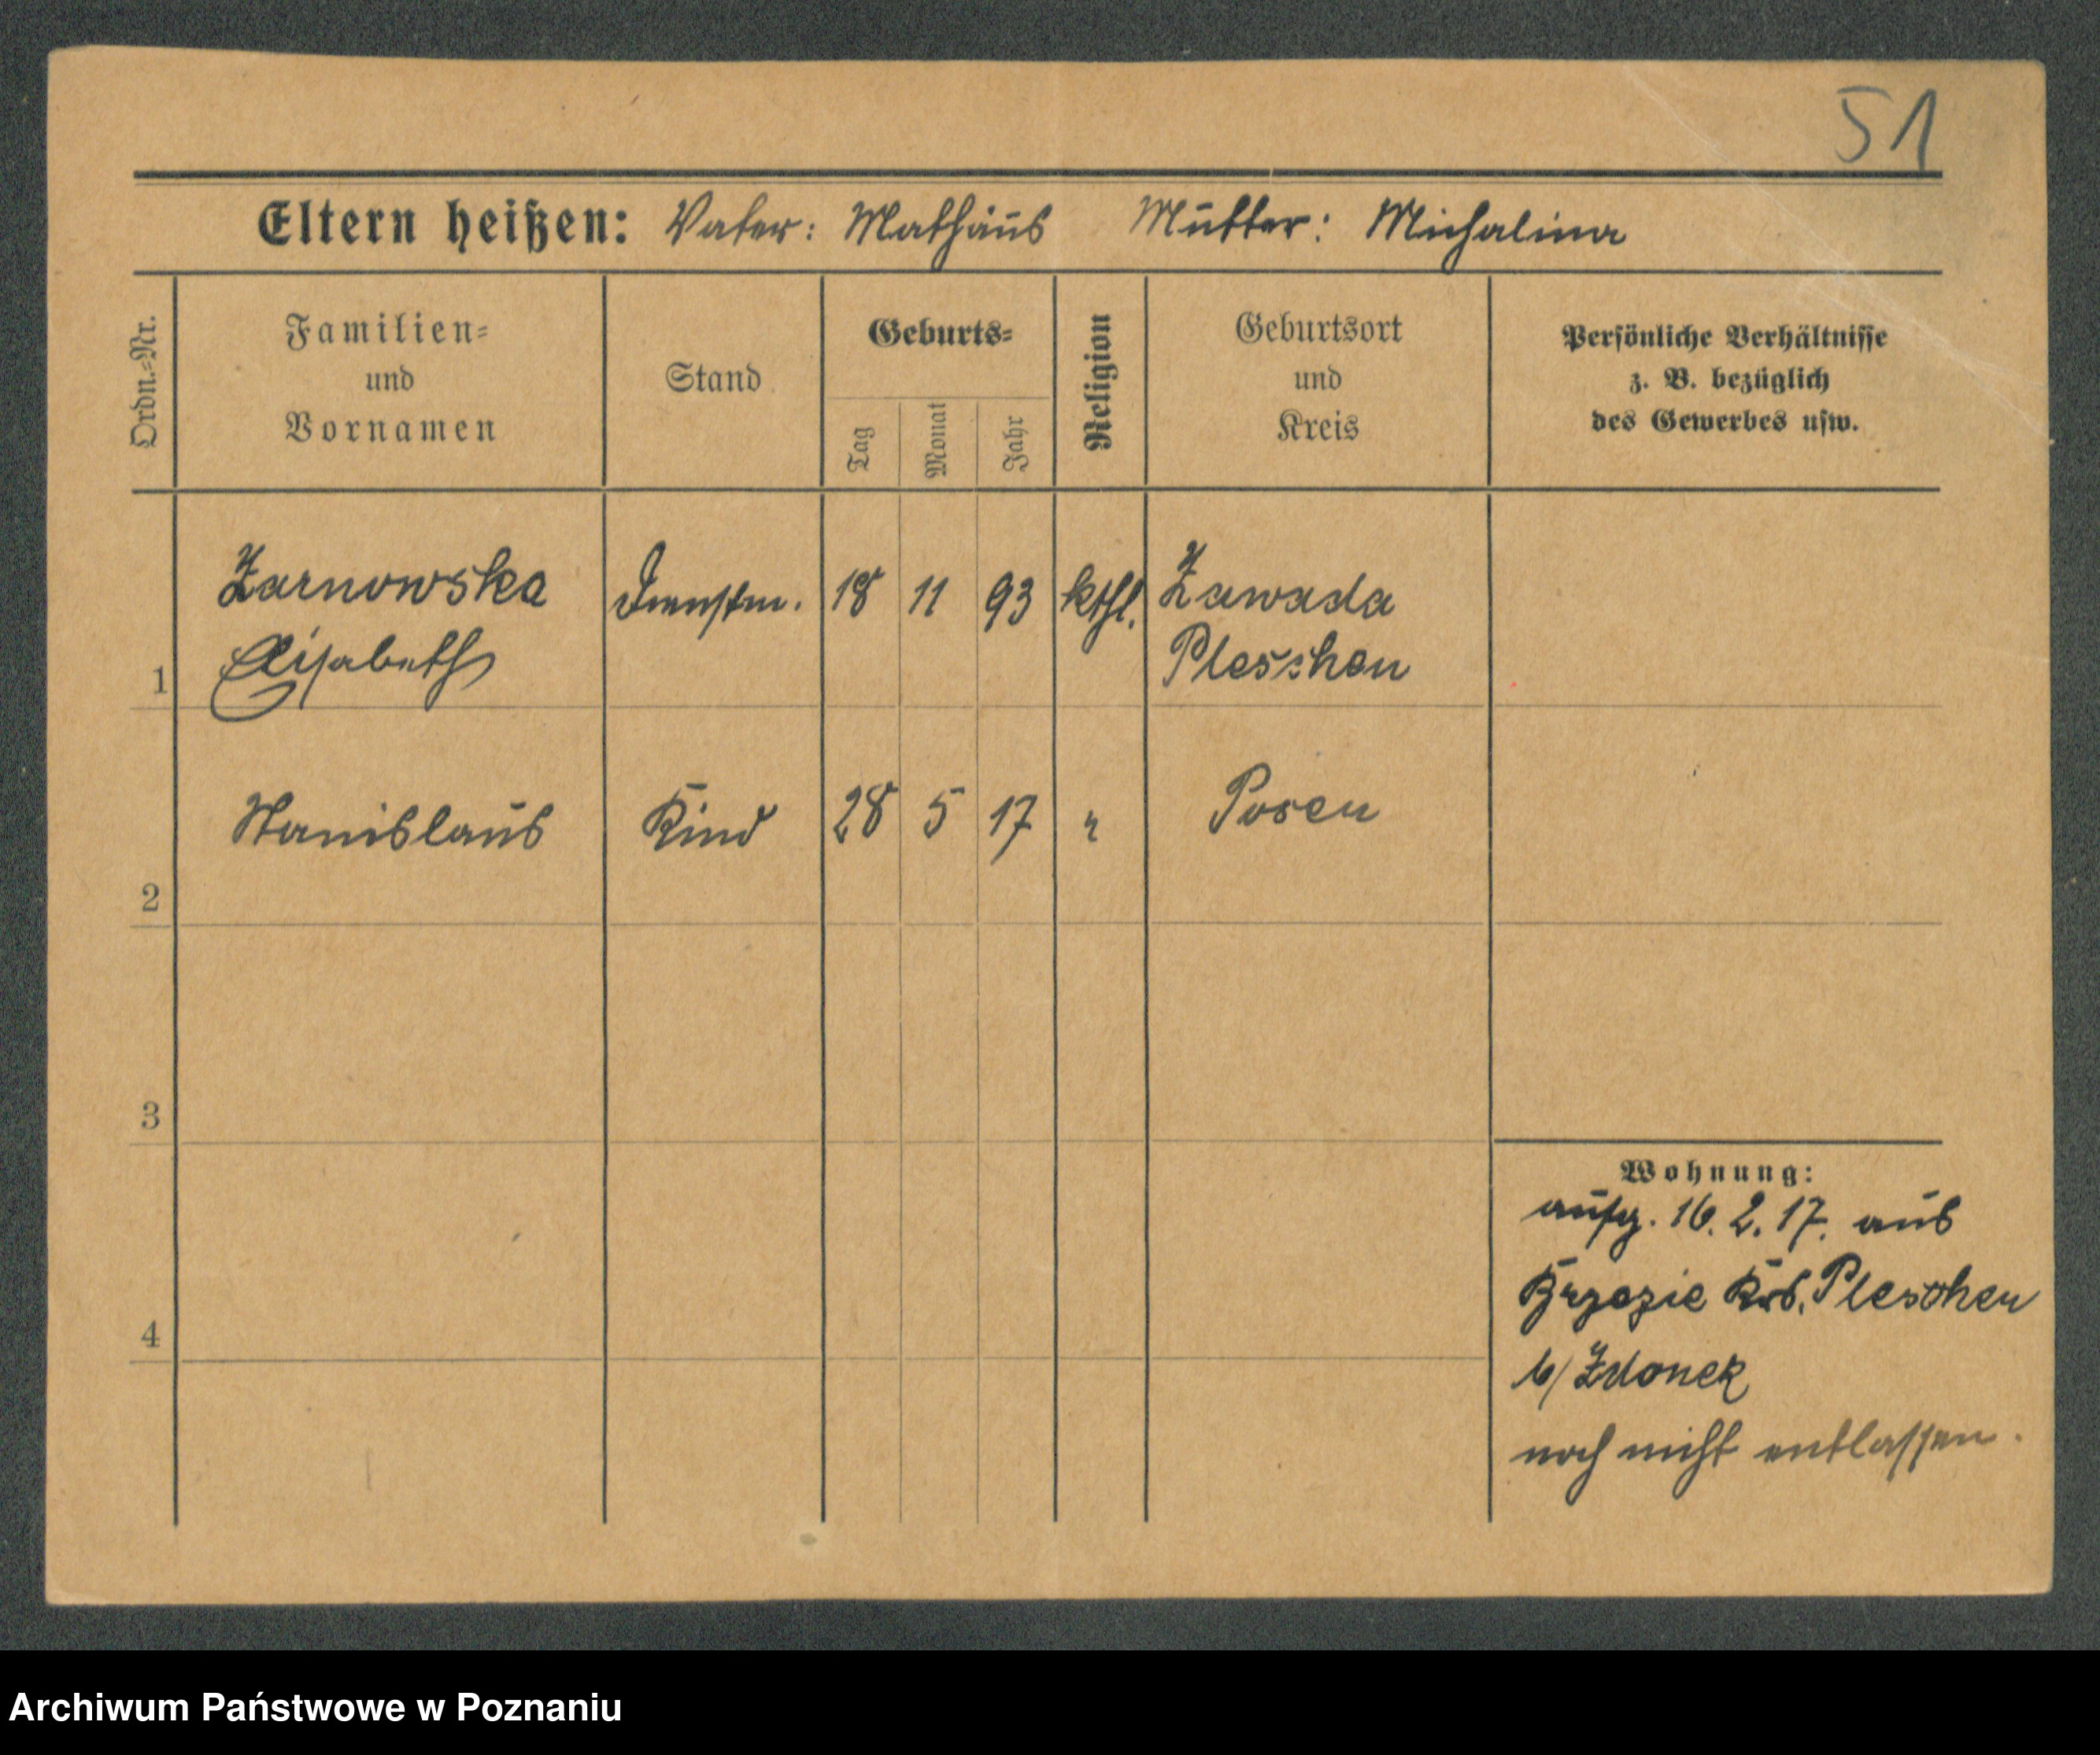 51
Eltern heißen: Vater: Mathäus Mutter: Michalina
Ordn.=Nr.
Familien=
und
Vornamen
Stand
Geburts=
Tag
Monat
Jahr
Religion
Geburtsort
und
Kreis
Persönliche Verhältnisse
z. B. bezüglich
des Gewerbes usw.
Zarnowska Dienstm. 18 11 93 kthl. Zawada
1 Elisabeth Pleschen
Stanislaus Kind 28 5 17 " Posen
2
3
Wohnung:
aufg. 16. 2. 17. aus
Brzezie Krs. Pleschen
4
b/ Zdonek
noch nicht entlassen.
Archiwum Państwowe w Poznaniu